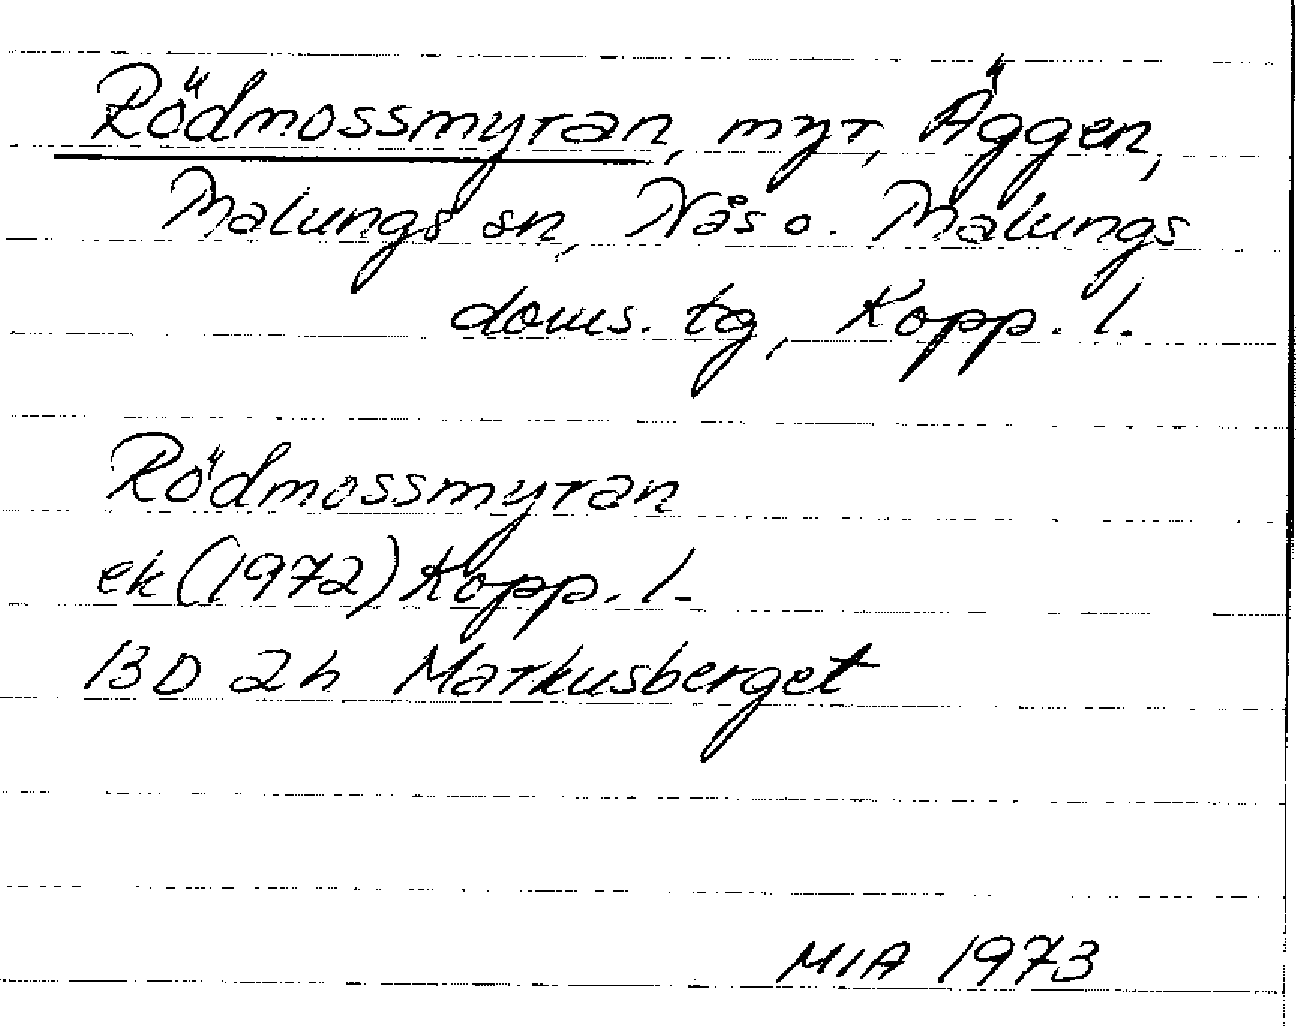 Rödmossmyran, myr, Äggen,
Malungs sn, Nås o. Malungs
doms. tg, Kopp. l.
Rödmossmyran
ek (1972) Kopp. l.
13D 2h Markusberget
MIA 1973